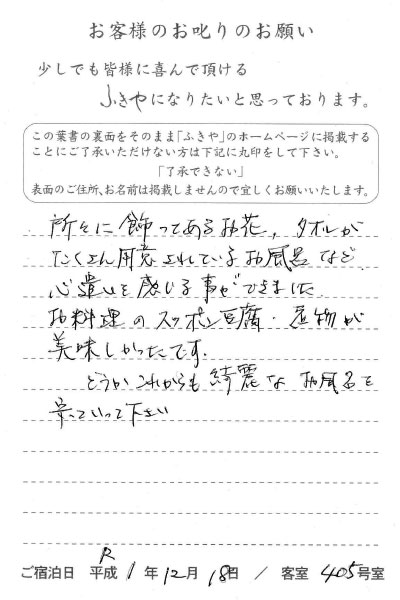 お客様のお叱りのお願い
少しでも皆様に喜んで頂ける
ふきやになりたいと思っております。
この葉書の裏面をそのまま「ふきや」のホームページに掲載する
ことにご了承いただけない方は下記に丸印をして下さい。
「了承できない」
表面のご住所、お名前は掲載しませんので宜しくお願いいたします。
所々に飾ってあるお花，タオルが
たくさん用意されているお風呂など
心遣いを感じる事ができました
お料理のスッポン豆腐・産物が
美味しかったです．
どうかこれからも綺麗なお風呂を
って下さい
R
ご宿泊日 平成1年12月18日 / 客室 405号室